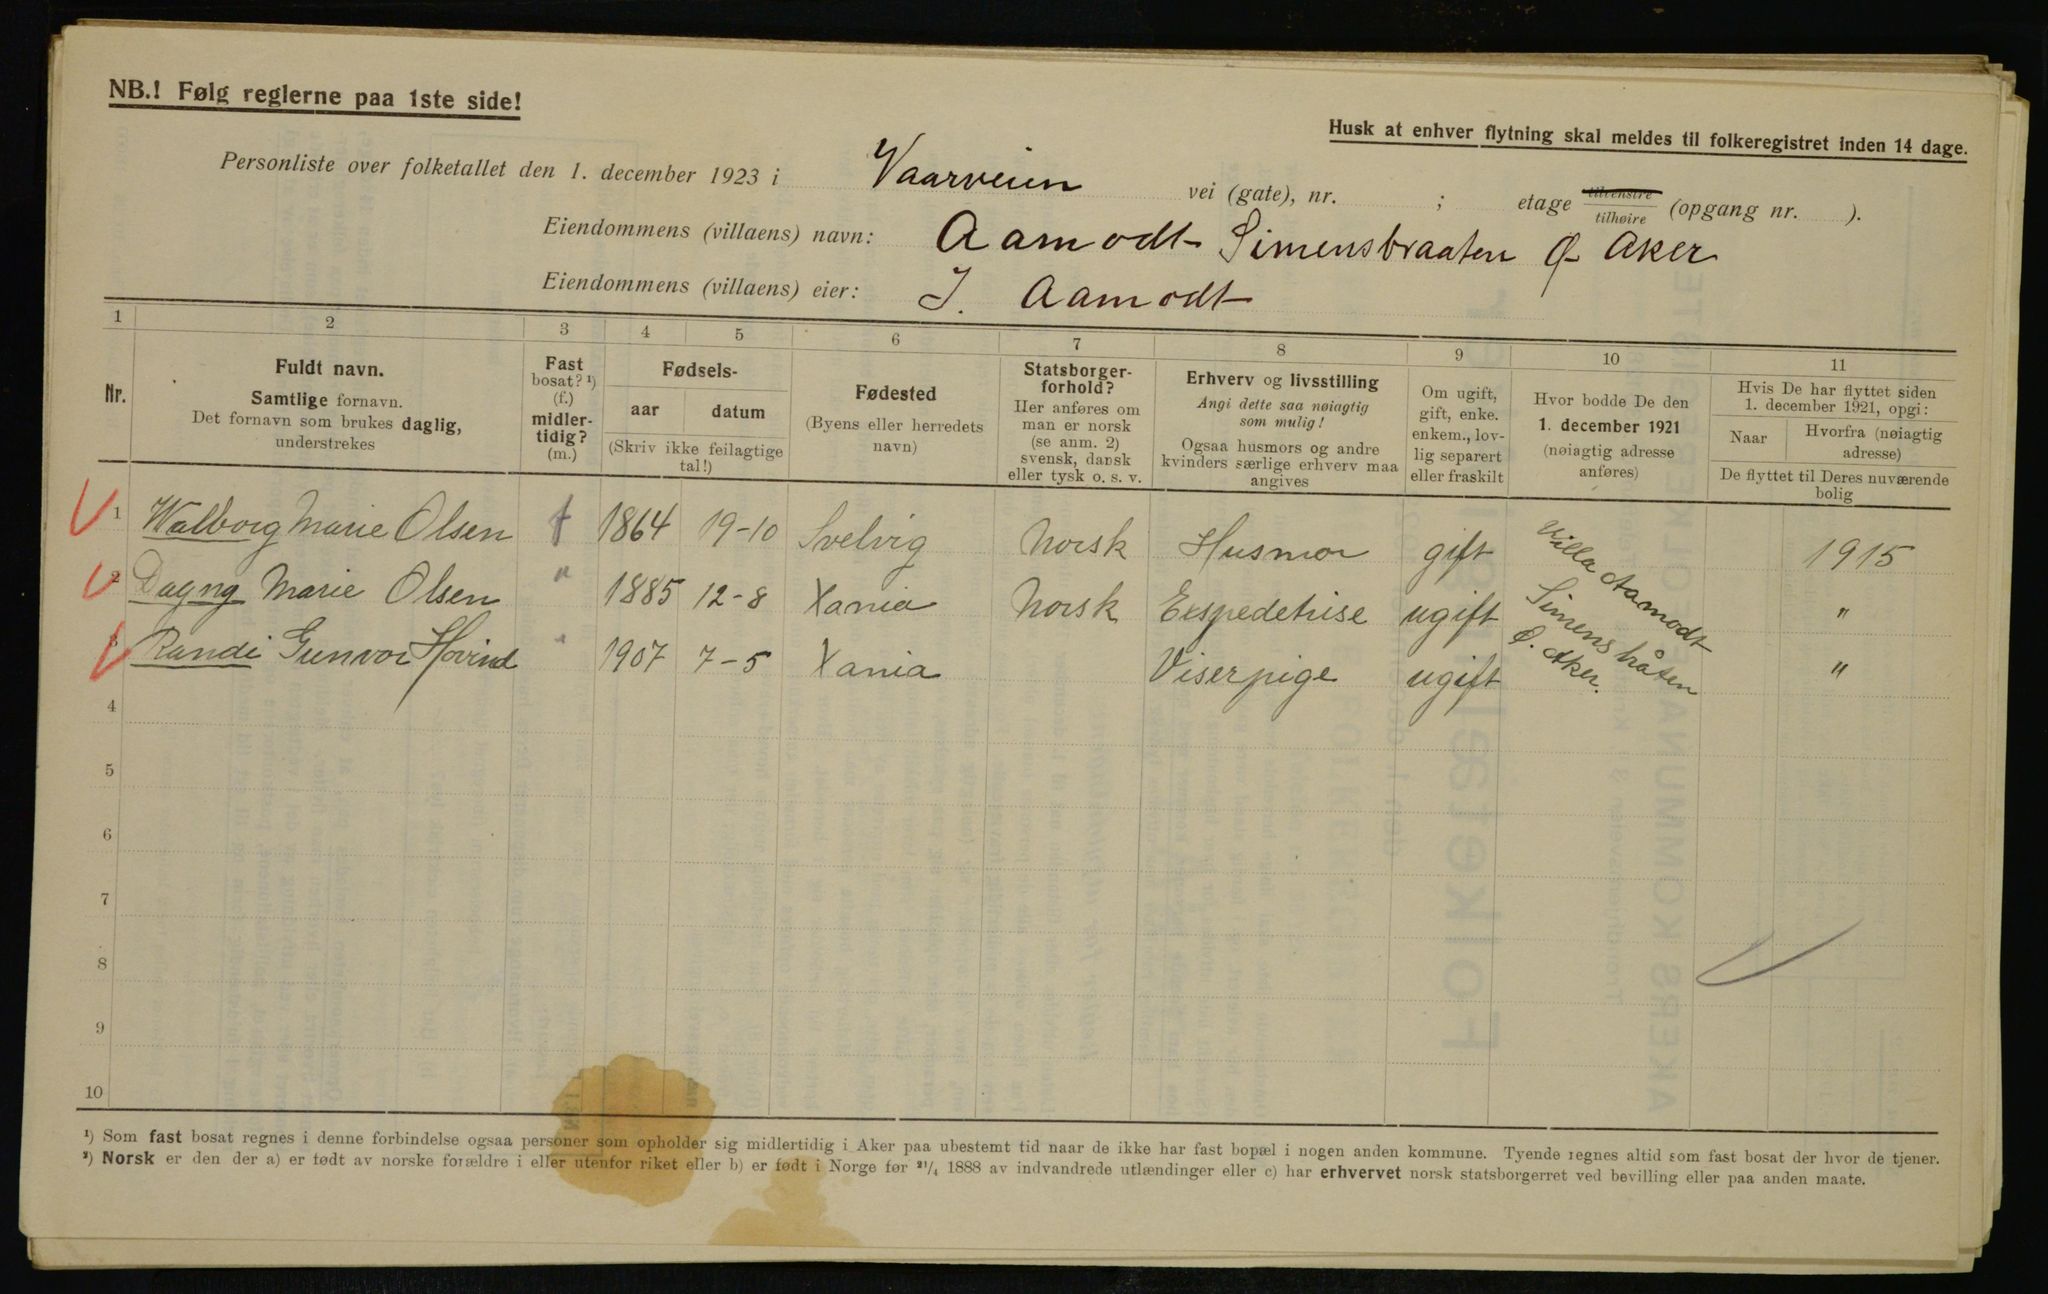 NB.! Følg reglerne paa 1ste side!
Husk at enhver flytning skal meldes til folkeregistret inden 14 dage.
Personliste over folketallet den 1. december 1923 i Vaarveien vei (gate), nr. ; etage tilvenstre / tilhøire (opgang nr. ).
Eiendommens (villaens) navn: Aamodt Simensbraaten Ø Aker
Eiendommens (villaens) eier: J. Aamodt
1 2 3 4 5 6 7 8 9 10 11
Nr.
Fuldt navn.
Samtlige fornavn.
Det fornavn som brukes daglig,
understrekes
Fast
bosat? ¹)
(f.)
midler-
tidig?
(m.)
Fødsels-
aar datum
(Skriv ikke feilagtige
tal!)
Fødested
(Byens eller herredets
navn)
Statsborger-
forhold?
Her anføres om
man er norsk
(se anm. 2)
svensk, dansk
eller tysk o. s. v.
Erhverv og livsstilling
Angi dette saa nøiagtig
som mulig!
Ogsaa husmors og andre
kvinders særlige erhverv maa
angives
Om ugift,
gift, enke.
enkem., lov-
lig separert
eller fraskilt
Hvor bodde De den
1. december 1921
(nøiagtig adresse
anføres)
Hvis De har flyttet siden
1. december 1921, opgi:
Naar Hvorfra (nøiagtig
adresse)
De flyttet til Deres nuværende
bolig
1 Walborg Marie Olsen f 1864 19-10 Svelvig Norsk Husmor gift 1915
2 Dagny Marie Olsen " 1885 12-8 Xania Norsk Ekspedetrise ugift "
3 Randi Gunvor Hovind " 1907 7-5 Xania Viserpige ugift "
Villa Aamodt
Simensbråten
Ø. Aker.
4
5
6
7
8
9
10
¹) Som fast bosat regnes i denne forbindelse ogsaa personer som opholder sig midlertidig i Aker paa ubestemt tid naar de ikke har fast bopæl i nogen anden kommune. Tyende regnes altid som fast bosat der hvor de tjener.
²) Norsk er den der a) er født av norske forældre i eller utenfor riket eller b) er født i Norge før ²¹/₄ 1888 av indvandrede utlændinger eller c) har erhvervet norsk statsborgerret ved bevilling eller paa anden maate.